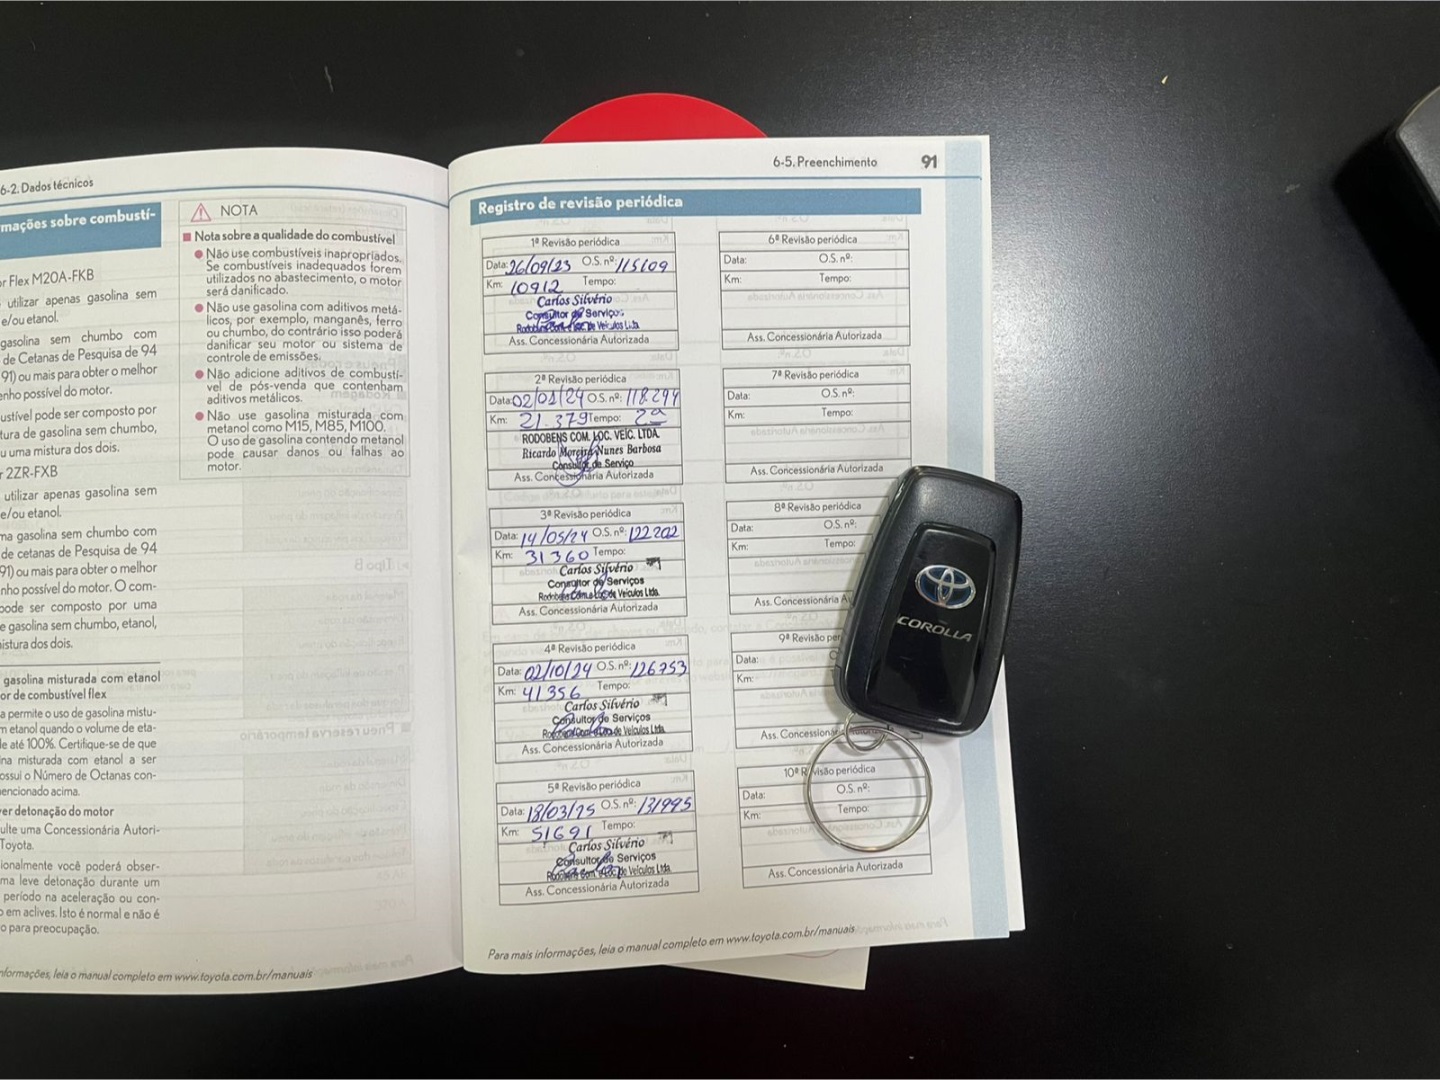 6-2. Dados técnicos
mações sobre combustí-
r Flex M20A-FKB
utilizar apenas gasolina sem
e/ou etanol.
gasolina sem chumbo com
de Cetanas de Pesquisa de 94
91) ou mais para obter o melhor
nho possível do motor.
ustível pode ser composto por
tura de gasolina sem chumbo,
u uma mistura dos dois.
r 2ZR-FXB
utilizar apenas gasolina sem
e/ou etanol.
ma gasolina sem chumbo com
de cetanas de Pesquisa de 94
91) ou mais para obter o melhor
nho possível do motor. O com-
pode ser composto por uma
e gasolina sem chumbo, etanol,
istura dos dois.
gasolina misturada com etanol
or de combustível flex
a permite o uso de gasolina mistu-
m etanol quando o volume de eta-
de até 100%. Certifique-se de que
ina misturada com etanol a ser
ossui o Número de Octanas con-
encionado acima.
er detonação do motor
ulte uma Concessionária Autori-
Toyota.
ionalmente você poderá obser-
ma leve detonação durante um
período na aceleração ou con-
o em aclives. Isto é normal e não é
o para preocupação.
nformações, leia o manual completo em www.toyota.com.br/manuais
NOTA
Nota sobre a qualidade do combustível
Não use combustíveis inapropriados.
Se combustíveis inadequados forem
utilizados no abastecimento, o motor
será danificado.
Não use gasolina com aditivos metá-
licos, por exemplo, manganês, ferro
ou chumbo, do contrário isso poderá
danificar seu motor ou sistema de
controle de emissões.
Não adicione aditivos de combustí-
vel de pós-venda que contenham
aditivos metálicos.
Não use gasolina misturada com
metanol como M15, M85, M100.
O uso de gasolina contendo metanol
pode causar danos ou falhas ao
motor.
6-5. Preenchimento 91
Registro de revisão periódica
1ª Revisão periódica
Data: 26/09/23 O.S. nº: 115109
Km: 10912 Tempo:
Carlos Silvério
Consultor de Serviços
Ass. Concessionária Autorizada
2ª Revisão periódica
Data: 02/01/24 O.S. nº: 118.294
Km: 21.379 Tempo: 2ª
RODOBENS COM. LOC. VEIC. LTDA.
Ricardo Moreira Nunes Barbosa
Consultor de Serviço
Ass. Concessionária Autorizada
3ª Revisão periódica
Data: 14/05/24 O.S. nº: 122202
Km: 31360 Tempo:
Carlos Silvério
Consultor de Serviços
Ass. Concessionária Autorizada
4ª Revisão periódica
Data: 02/10/24 O.S. nº: 126753
Km: 41356 Tempo:
Carlos Silvério
Consultor de Serviços
Ass. Concessionária Autorizada
5ª Revisão periódica
Data: 18/03/25 O.S. nº: 131995
Km: 51691 Tempo:
Carlos Silvério
Consultor de Serviços
Ass. Concessionária Autorizada
6ª Revisão periódica
Data: O.S. nº:
Km: Tempo:
Ass. Concessionária Autorizada
7ª Revisão periódica
Data: O.S. nº:
Km: Tempo:
Ass. Concessionária Autorizada
8ª Revisão periódica
Data: O.S. nº:
Km: Tempo:
Ass. Concessionária A
9ª Revisão per
Data:
Km:
Ass. Concessionária
10ª Revisão periódica
Data: O.S. nº:
Km: Tempo:
Ass. Concessionária Autorizada
Para mais informações, leia o manual completo em www.toyota.com.br/manuais
COROLLA